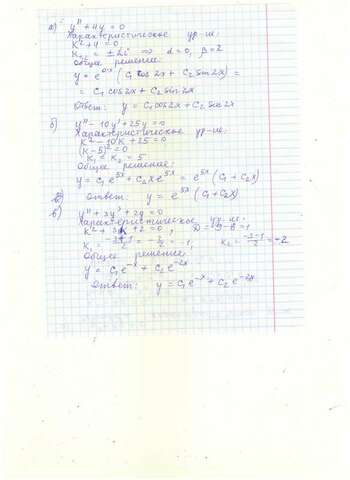 а) y'' + 4y = 0
Характеристическое ур-ие:
k² + 4 = 0
k₁,₂ = ± 2i ⇒ α = 0, β = 2
Общее решение:
y = e^0x (C₁ cos 2x + C₂ sin 2x) =
= C₁ cos 2x + C₂ sin 2x
Ответ: y = C₁ cos 2x + C₂ sin 2x
б) y'' - 10y' + 25y = 0
Характеристическое ур-ие:
k² - 10k + 25 = 0
(k - 5)² = 0
k₁ = k₂ = 5
Общее решение:
y = C₁ e^5x + C₂ x e^5x = e^5x (C₁ + C₂x)
Ответ: y = e^5x (C₁ + C₂x)
в) y'' + 3y' + 2y = 0
Характеристическое ур-ие:
k² + 3k + 2 = 0, D = 9 - 8 = 1
k₁ = -3+1/2 = -2/2 = -1, k₂ = -3-1/2 = -2
Общее решение:
y = C₁ e^-x + C₂ e^-2x
Ответ: y = C₁ e^-x + C₂ e^-2x